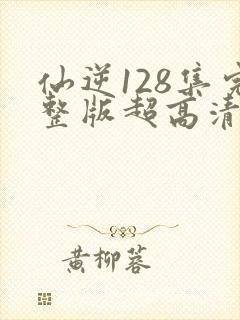 仙逆128集完
整版超高清
黄柳蓉